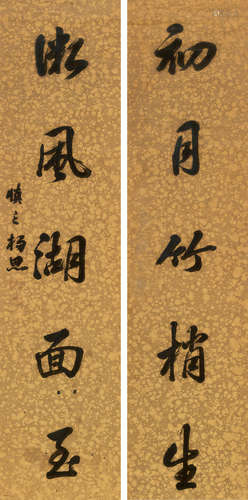 初月竹梢生
微風湖面至
慎之楊思